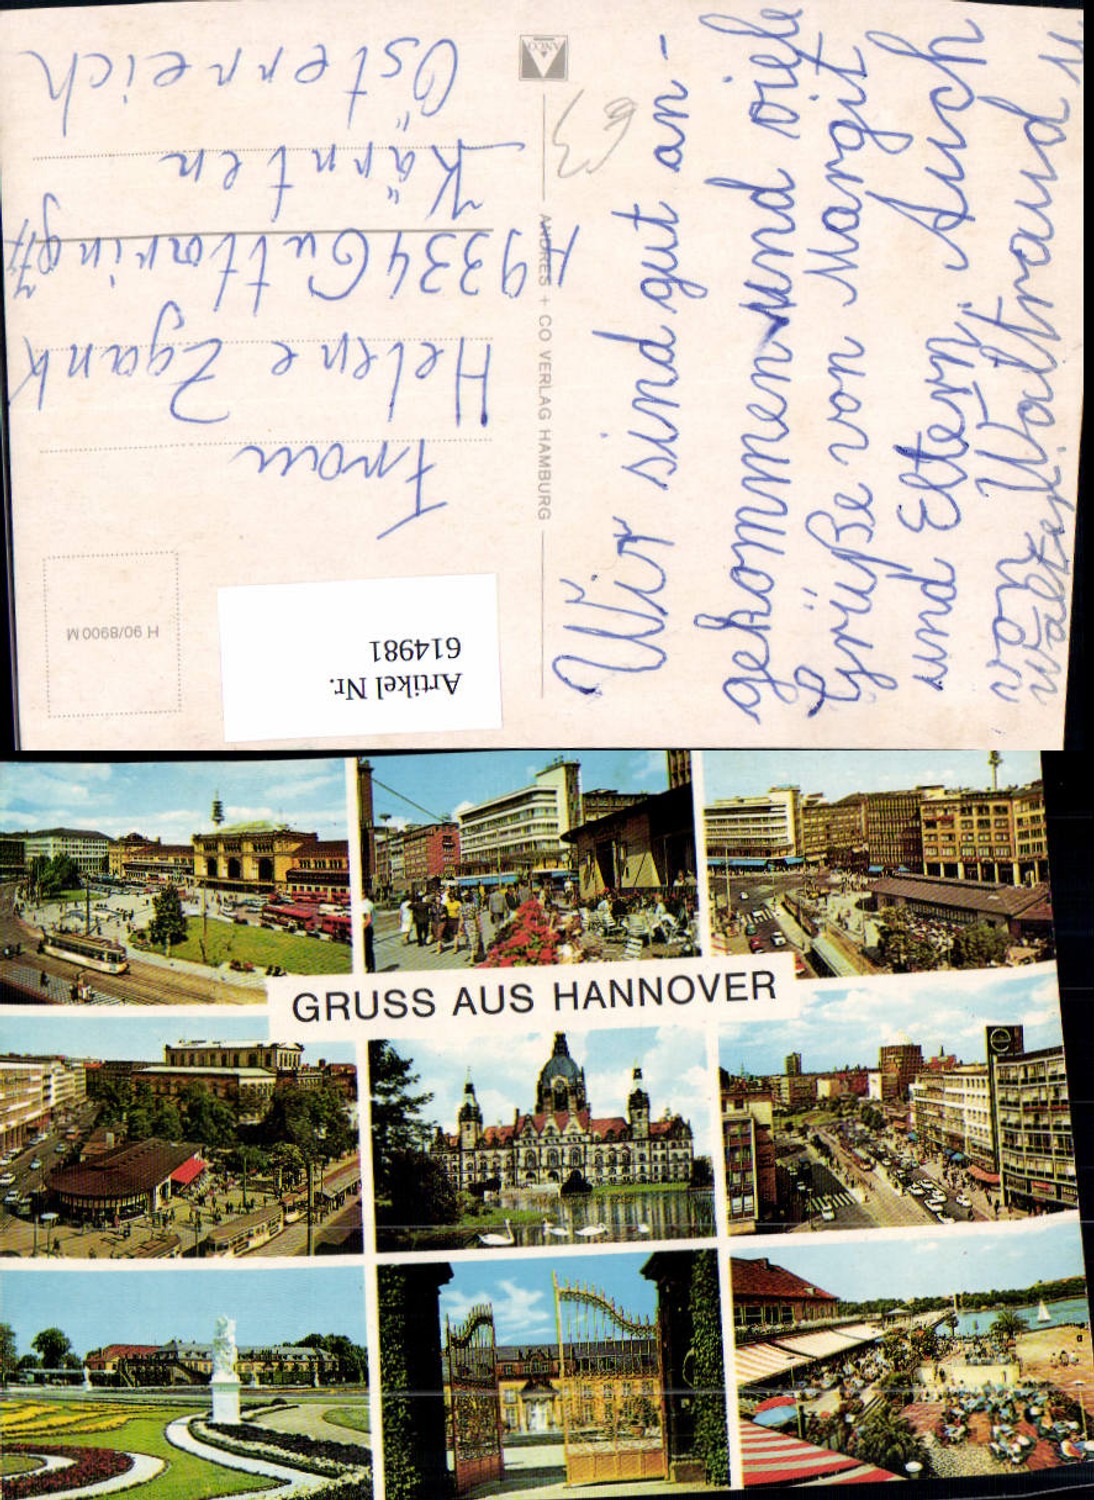 Wir sind gut an-
gekommen und viele
Grüße von Margit
und Eltern, Auch
von Waltraud u
Walter
ANCO
ANDRES + CO VERLAG HAMBURG
63
H 90/8900 M
Artikel Nr.
614981
Frau
Helene Zgank
A 9334 Guttaring
Kärnten
Österreich
GRUSS AUS HANNOVER